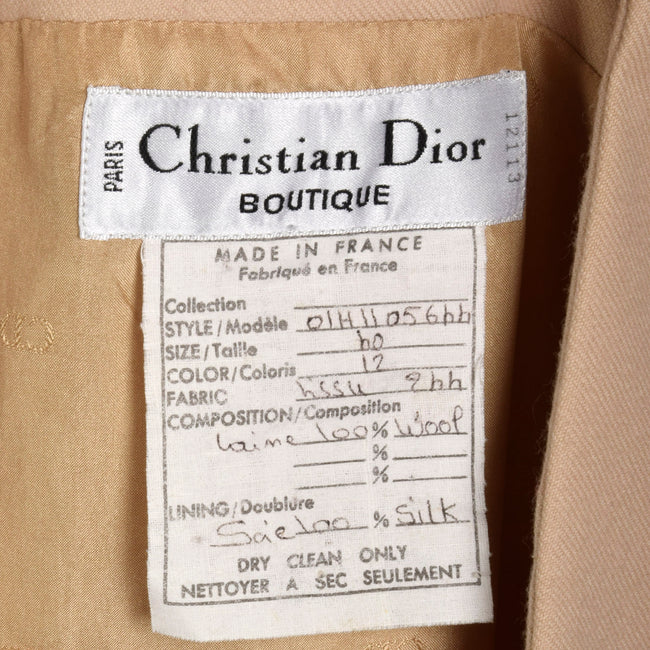 PARIS
Christian Dior
BOUTIQUE
12113
MADE IN FRANCE
Fabriqué en France
Collection
STYLE/Modèle 01H1105644
SIZE/Taille 40
COLOR/Coloris 12
FABRIC tissu 244
COMPOSITION/Composition
Laine 100 % Wool
%
%
LINING/Doublure
Soie 100 % Silk
DRY CLEAN ONLY
NETTOYER A SEC SEULEMENT